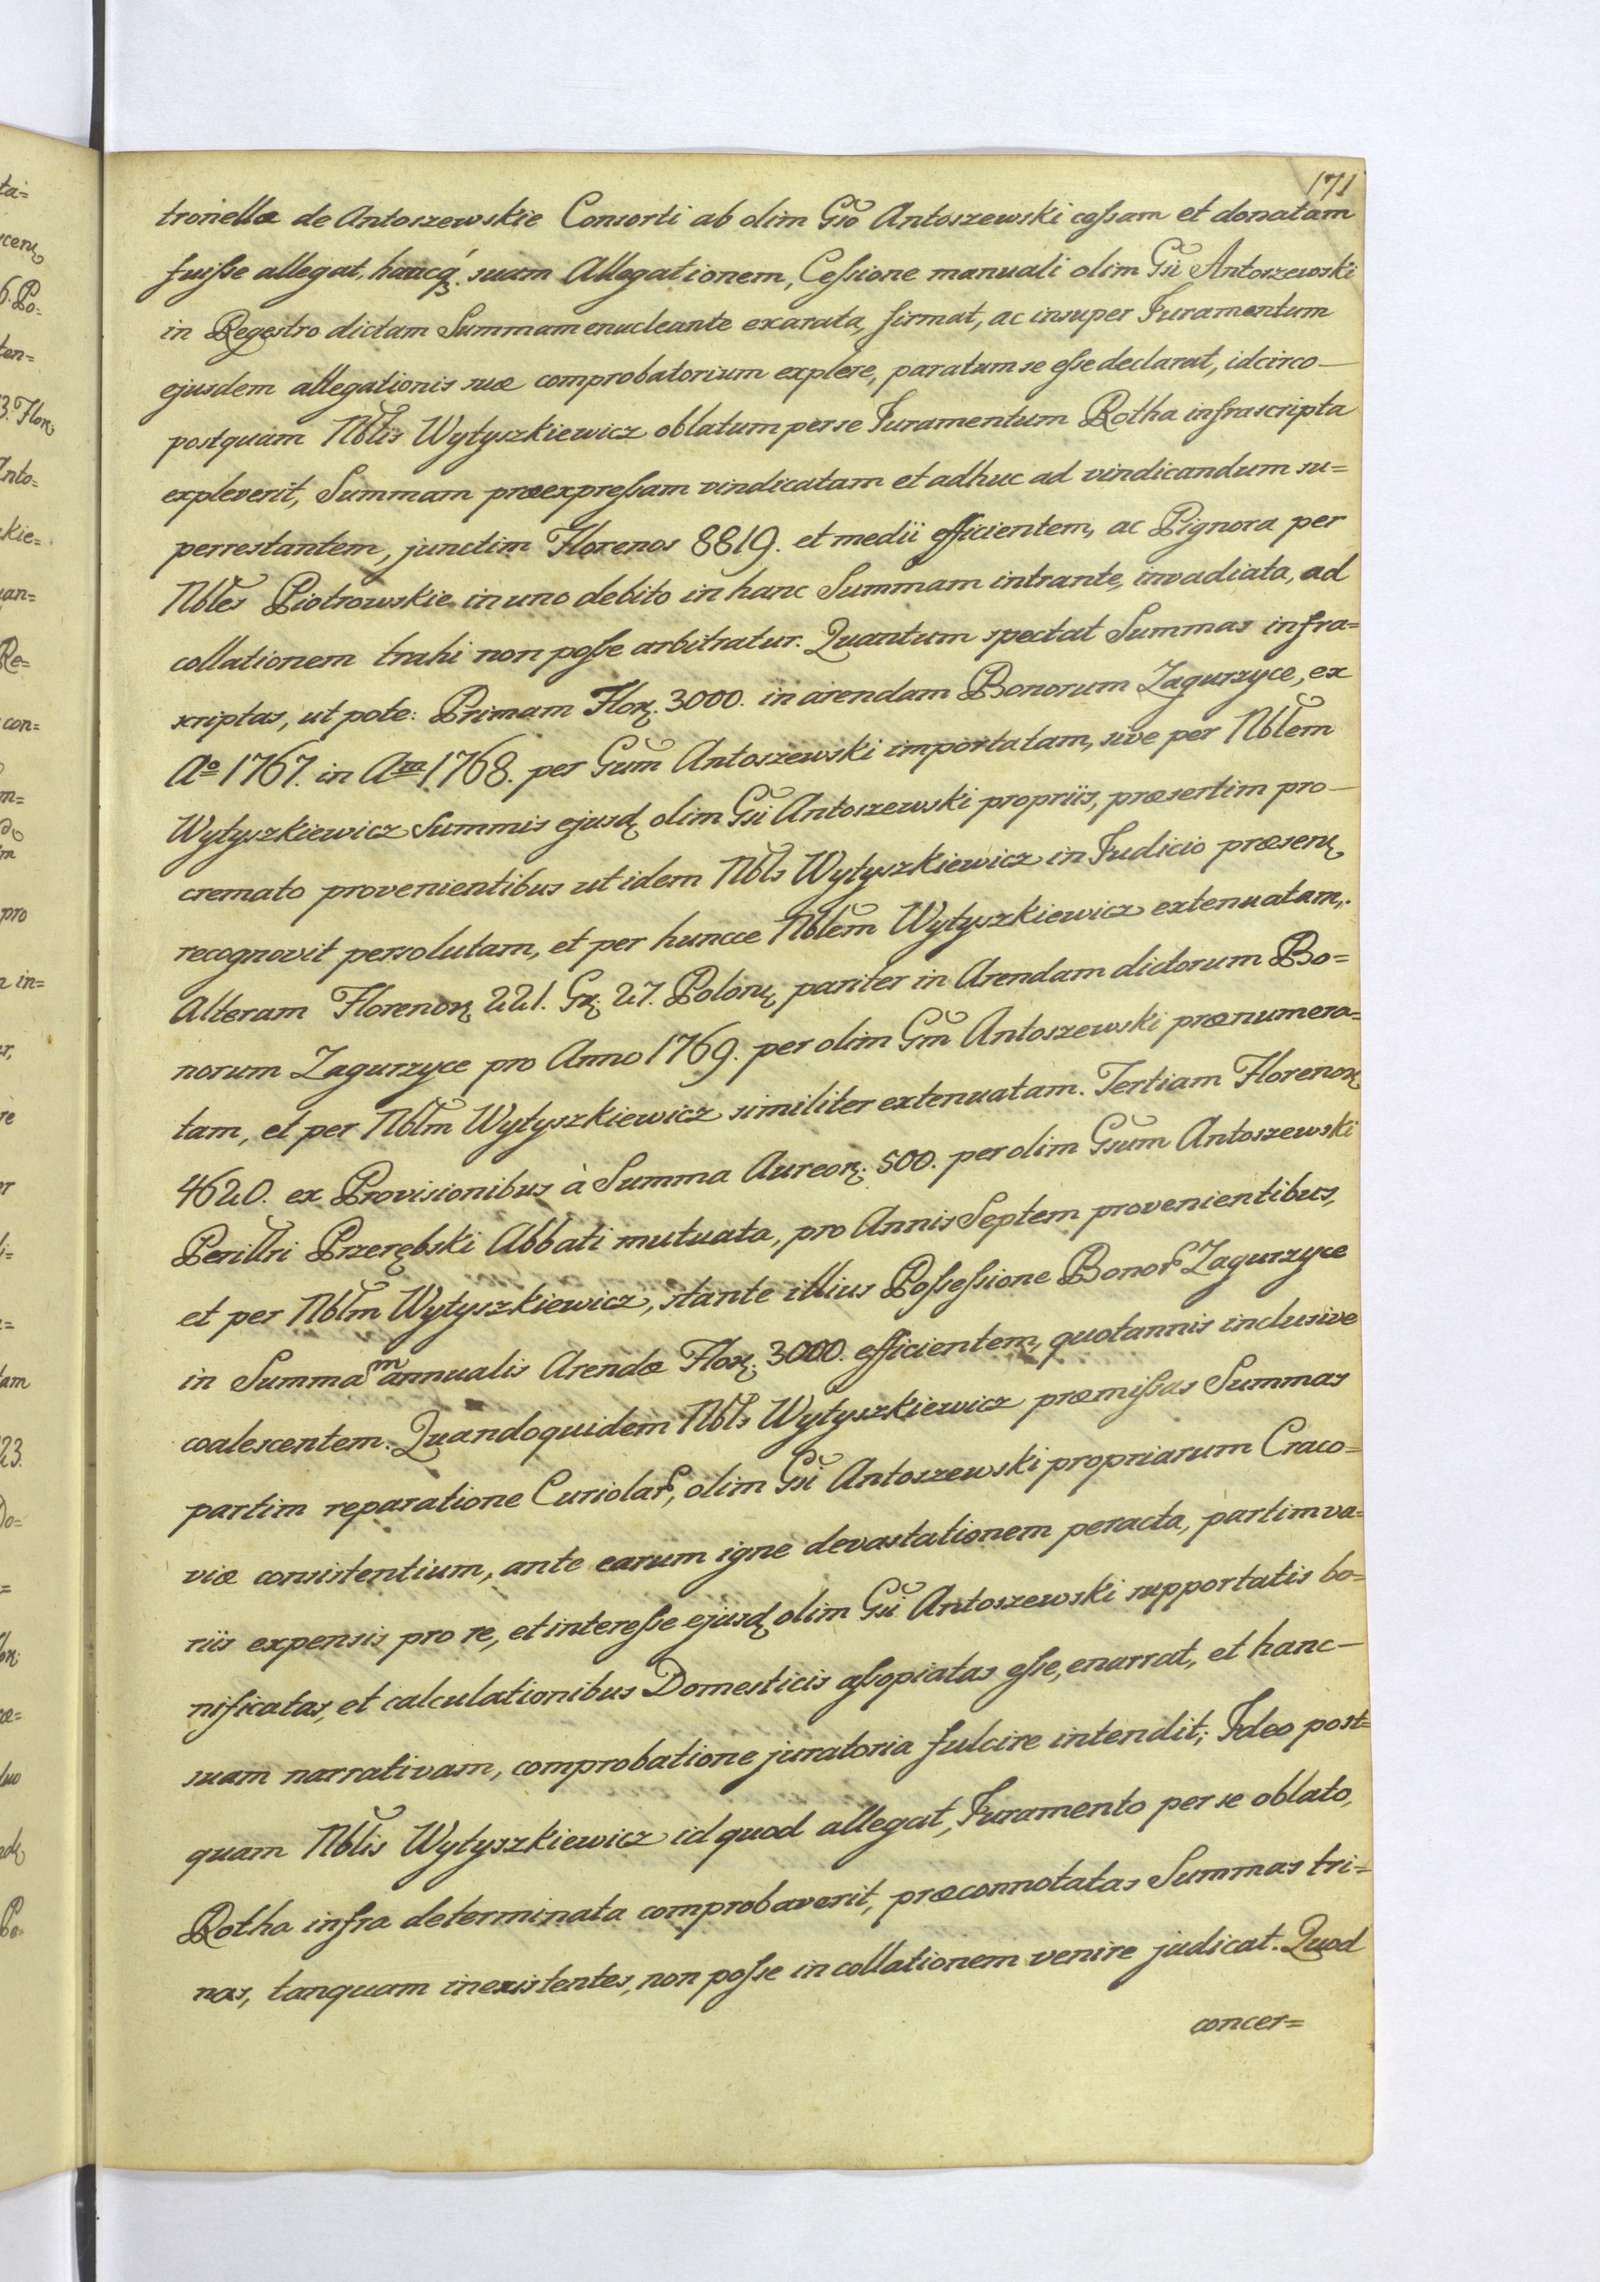 171
tronellæ de Antoszewskie Consorti ab olim Gso Antoszewski cessam et donatam
fuisse allegat, hancq; suam Allegationem, Cessione manuali olim Gsi Antoszewski
in Regestro dictam Summam enucleante exarata, firmat, ac insuper Juramentum
ejusdem allegationis suæ comprobatorium explere, paratum se esse declarat, idcirco—
postquam Nblis Wytyszkiewicz oblatum per se Juramentum Rotha infrascripta
expleverit, Summam præexpressam vindicatam et adhuc ad vindicandum su=
perrestantem, junctim Florenos 8819. et medii efficientem, ac Pignora per
Nbles Piotrowskie in uno debito in hanc Summam intrante, invadiata, ad
collationem trahi non posse arbitratur. Quantum spectat Summas infra=
scriptas, ut pote: Primam Flor. 3000. in arendam Bonorum Zagurzyce, ex
Ao 1767. in Am 1768. per Gum Antoszewski importatam, sive per Nblem
Wytyszkiewicz Summis ejusd olim Gsi Antoszewski propriis, præsertim pro—
cremato provenientibus ut idem Nbls Wytyszkiewicz in Judicio præsen
recognovit persolutam, et per huncce Nblem Wytyszkiewicz extenuatam,.
Alteram Florenor 221. Gr. 27. Polon pariter in Arendam dictorum Bo=
norum Zagurzyce pro Anno 1769. per olim Gm Antoszewski prænumera=
tam, et per Nblm Wytyszkiewicz similiter extenuatam. Tertiam Florenor
4620. ex Provisionibus à Summa Aureor. 500. per olim Gsum Antoszewski
Perillri Przerębski Abbati mutuata, pro Annis Septem provenientibus,
et per Nblm Wytyszkiewicz, stante illius Possessione Bonor Zagurzyce
in Summam annualis Arendæ Flor. 3000. efficientem, quotannis inclusive
coalescentem. Quandoquidem Nbls Wytyszkiewicz præmissas Summas
partim reparatione Curiolar, olim Gsi Antoszewski propriarum Craco=
viæ consistentium, ante earum igne devastationem peracta, partim va=
riis expensis pro re, et interesse ejusd olim Gsi Antoszewski supportatis bo=
nificatas, et calculationibus Domesticis assopiatas esse, enarrat, et hanc—
suam narrativam, comprobatione juratoria fulcire intendit; Ideo post=
quam Nblis Wytyszkiewicz id quod allegat, Juramento per se oblato,
Rotha infra determinata comprobaverit, præconnotatas Summas tri=
nas, tanquam inexistentes, non posse in collationem venire judicat. Quod
concer=